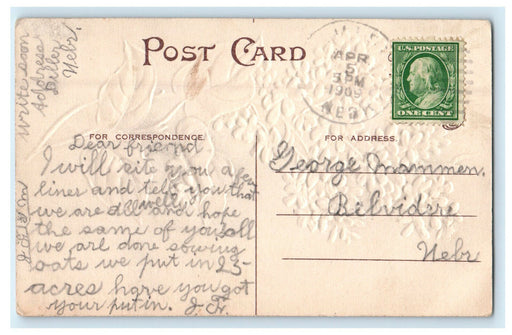 Write soon
Address
Diller
Nebr.
POST CARD
APR
5
3 PM
1909
NEBR
U.S. POSTAGE
ONE CENT
FOR CORRESPONDENCE.
FOR ADDRESS.
Dear friend
I will rite you a few
lines and tell you that
we are all well and hope
the same of you all
we are done sowing
oats we put in 25
acres have you got
your put in. J. F.
George Mammen.
Belvidere
Nebr